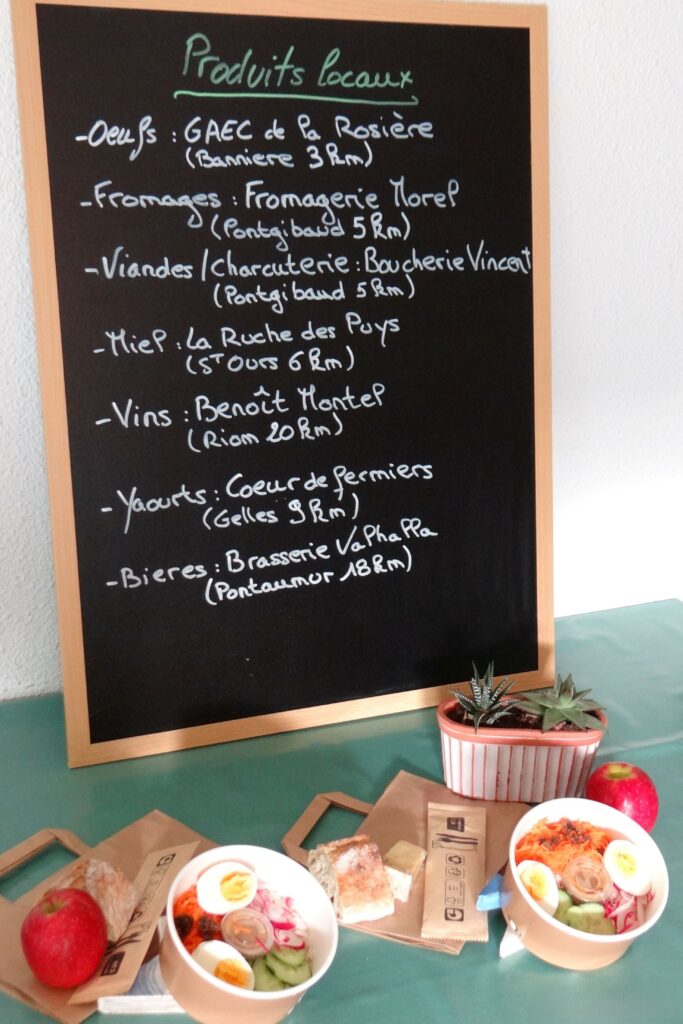 Produits locaux
- Oeufs : GAEC de la Rosière
(Banniere 3 km)
- Fromages : Fromagerie Morel
(Pontgibaud 5 km)
- Viandes / Charcuterie : Boucherie Vincent
(Pontgibaud 5 km)
- Miel : La Ruche des Puys
(ST Ours 6 km)
- Vins : Benoît Montel
(Riom 20 km)
- Yaourts : Coeur de fermiers
(Gelles 9 km)
- Bieres : Brasserie Valhalla
(Pontaumur 18 km)